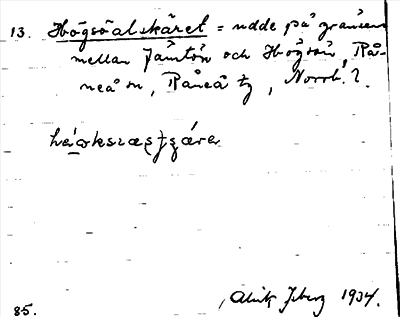 13. Högsöalskäret = udde på gränsen
mellan Jämtön och Högsön, Rå-
neå sn, Råneå tg, Norrb. l.
85. Alrik Isberg 1934.